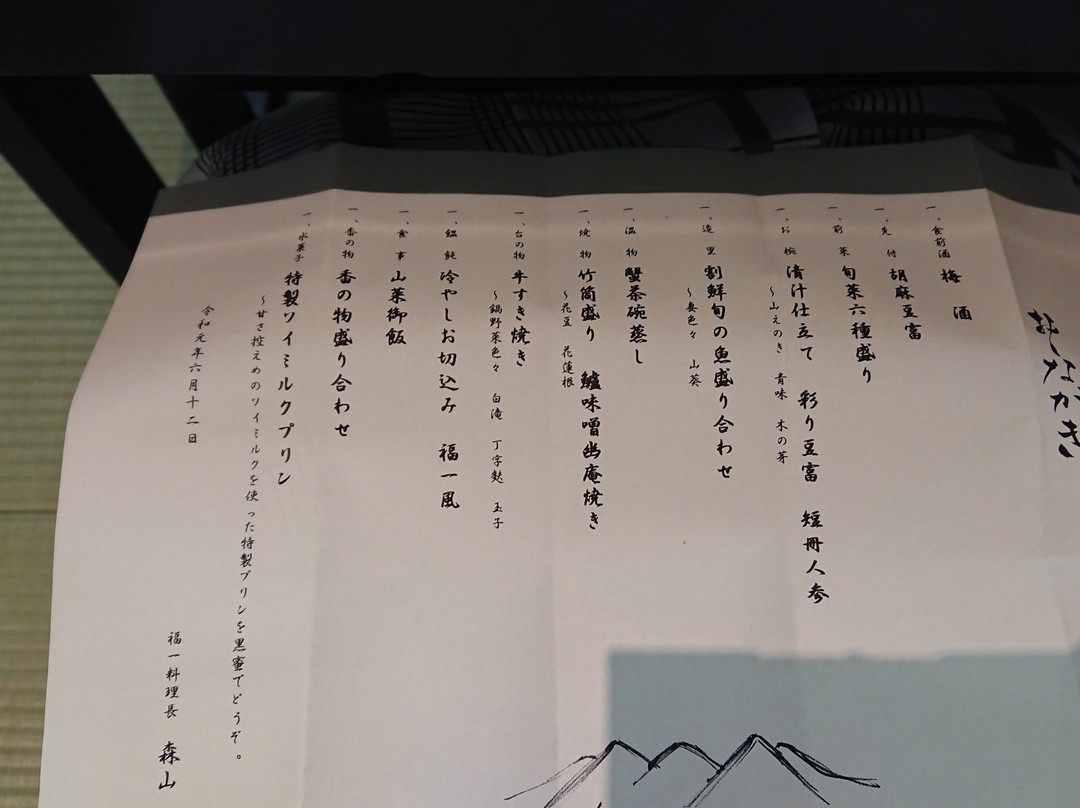 おしながき
一、食前酒 梅酒
一、先付 胡麻豆富
一、前菜 旬菜六種盛り
一、お椀 清汁仕立て 彩り豆富 短冊人参
～山えのき 青味 木の芽
一、造里 割鮮旬の魚盛り合わせ
～妻色々 山葵
一、温物 蟹茶碗蒸し
一、焼物 竹筒盛り 鱸味噌幽庵焼き
～花豆 花蓮根
一、台の物 牛すき焼き
～鍋野菜色々 白滝 丁字麩 玉子
一、饂飩 冷やしお切込み 福一風
一、食事 山菜御飯
一、香の物 香の物盛り合わせ
一、水菓子 特製ソイミルクプリン
～甘さ控えめのソイミルクを使った特製プリンを黒蜜でどうぞ。
令和元年六月十二日
福一料理長 森山